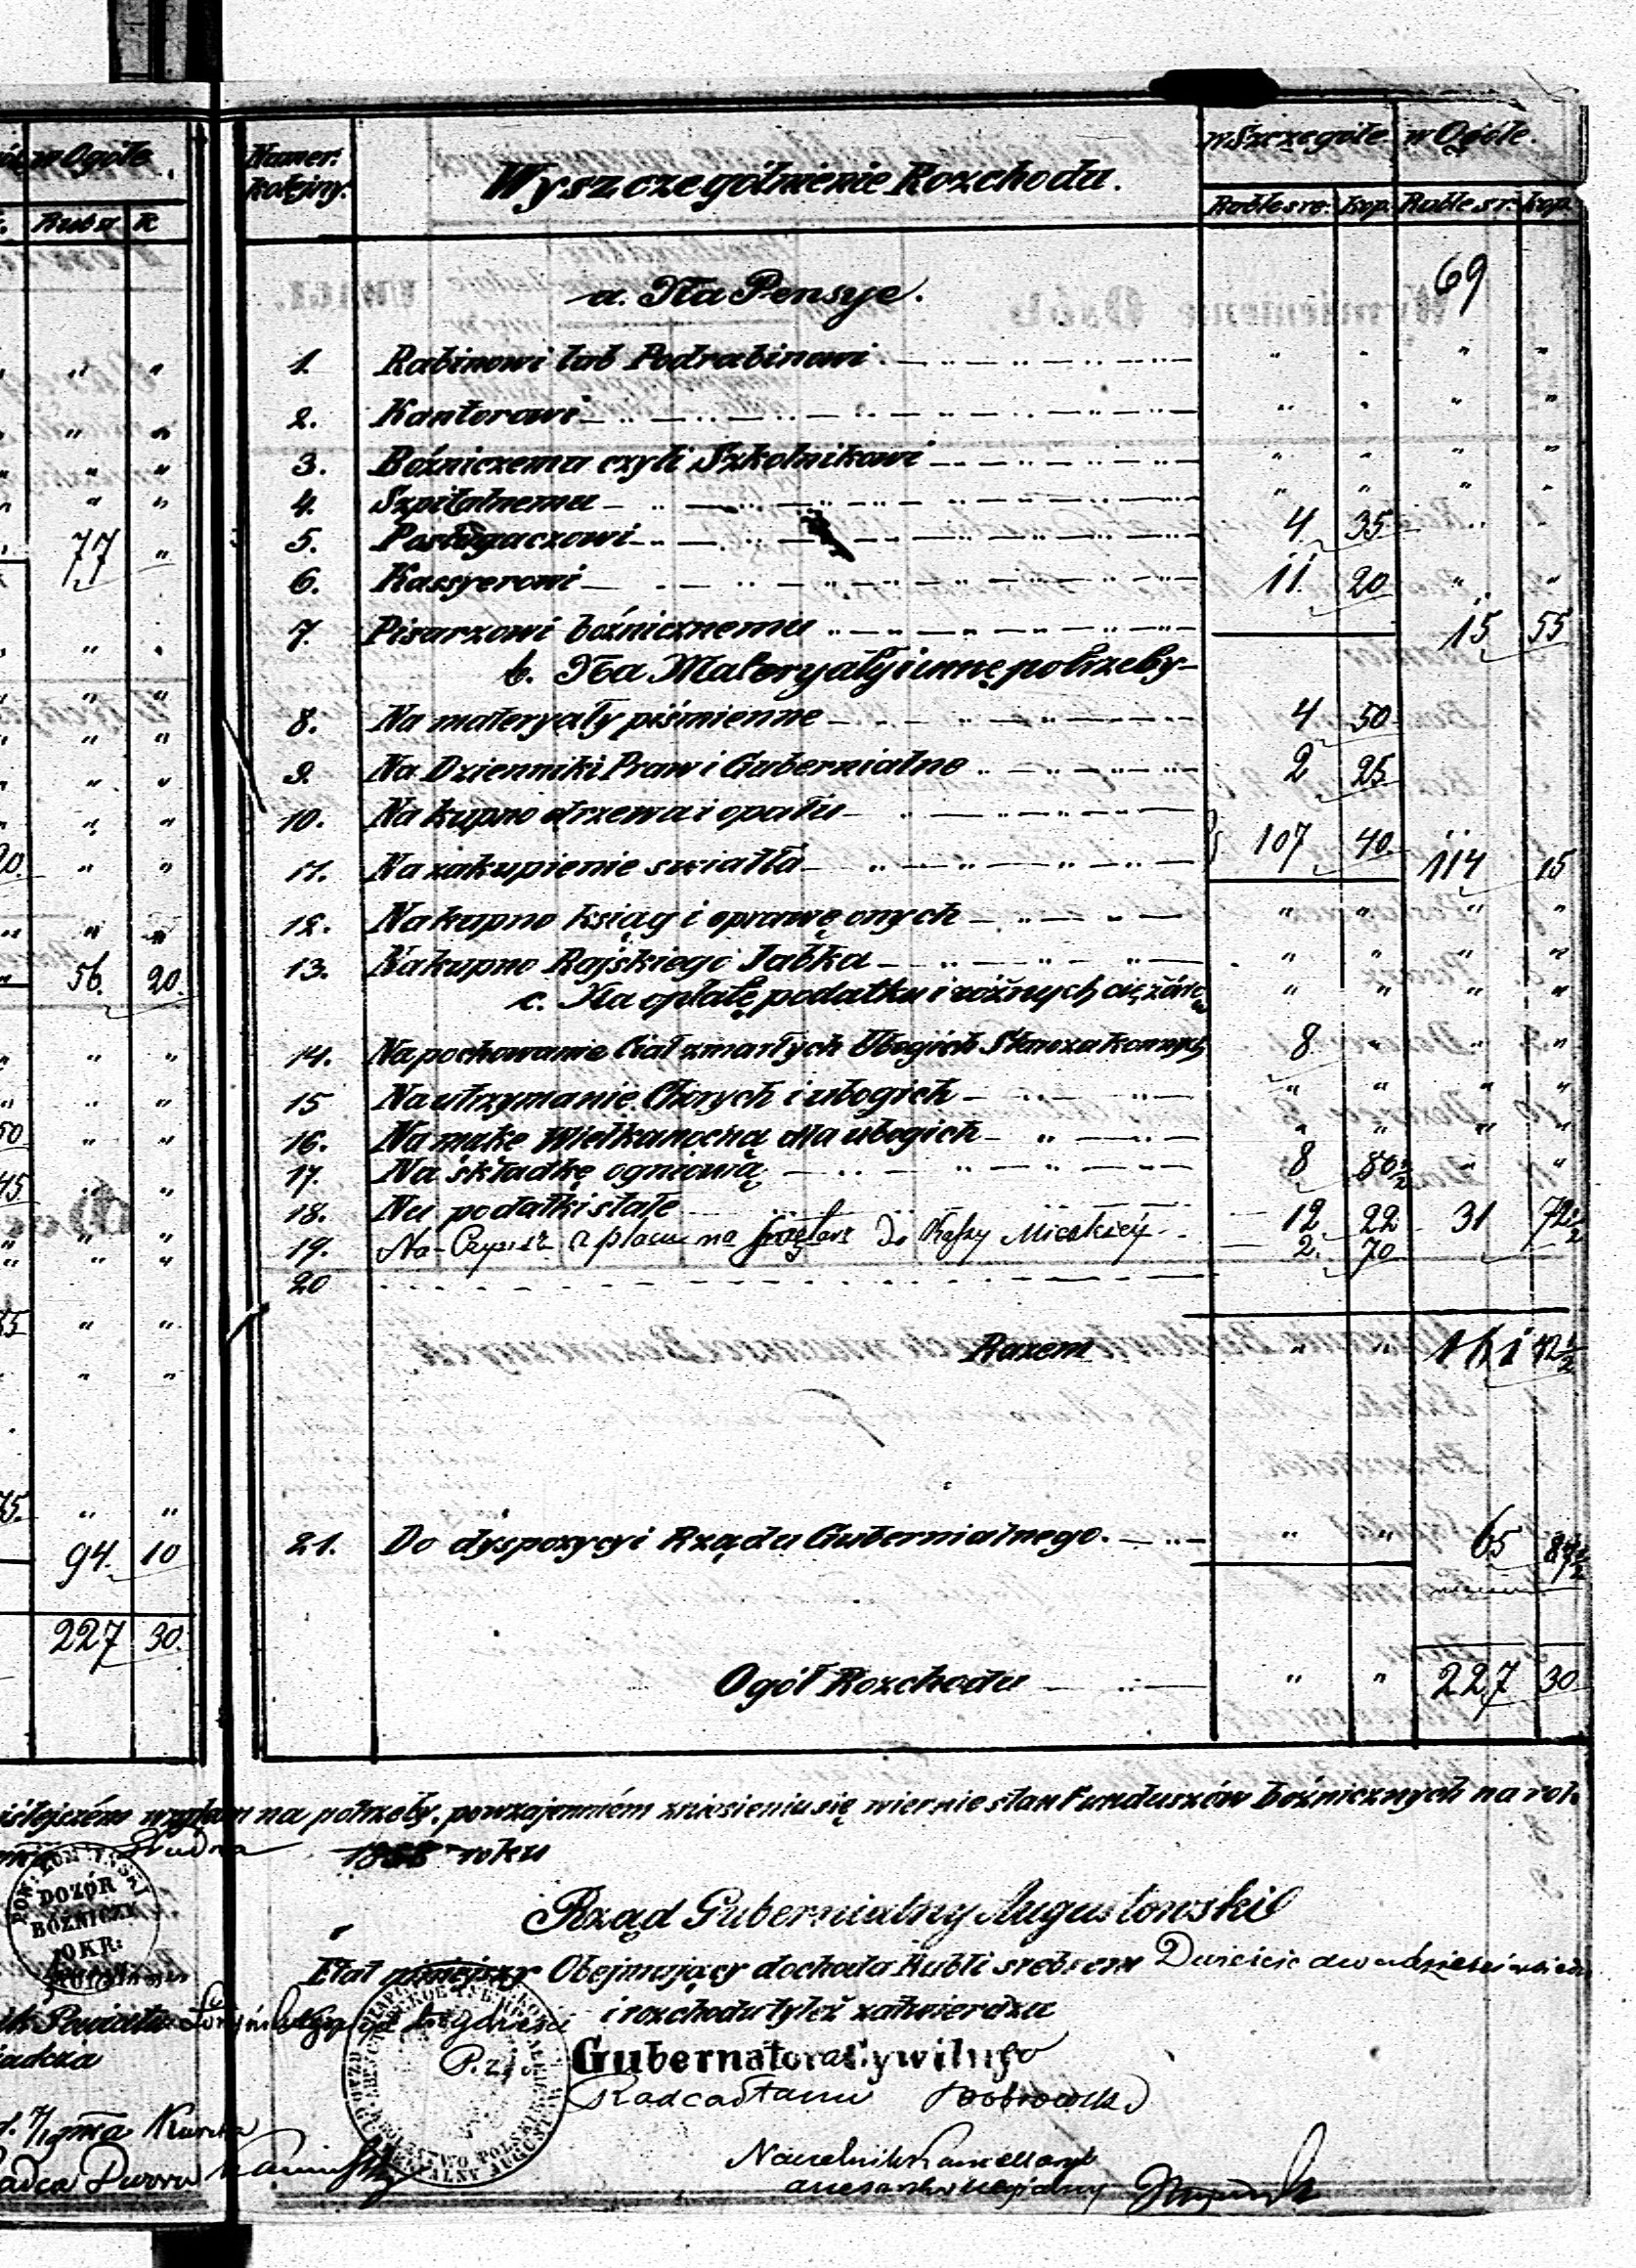 w Ogóle
Rub sr K
77 "
56. 20.
94. 10
227 30.
Numer kolejny.
Wyszczególnienie Rozchodu.
w Szczególe w Ogóle.
Ruble sre. Kop. Ruble sr. kop.
69
a. Na Pensye.
1. Rabinowi lub Podrabinowi " " " "
2. Kantorowi " " " "
3. Bożniczemu czyli Szkolnikowi " " " "
4. Szpitalnemu " " " "
5. Posługaczowi 4 35 " "
6. Kassyerowi 11 20 " "
7. Pisarzowi bożnicznemu 15 55
b. Na Materyały i inne potrzeby
8. Na materyały piśmienne 4 50
9. Na Dzienniki Praw i Gubernialne 2 25
10. Na kupno drzewa i opału
11. Na zakupienie swiatła 107 40 114 15
12. Na kupno ksiąg i oprawę onych " " " "
13. Na kupno Rajskiego Jabka " " " "
c. Na opłatę podatku i różnych ciężarów " " " "
14. Na pochowanie Ciał zmarłych Ubogich Starozakonnych 8 " " "
15 Na utrzymanie Chorych i ubogich " " " "
16. Na mąkę Wielkanocną dla ubogich " " " "
17. Na składkę ogniową 8 80½ " "
18. Na podatki stałe 12 22 31 72½
19. Na Czynsz z placu na do Kassy Mieskiey 2. 70
20
Razem " " 161 42½
21. Do dyspozycyi Rządu Gubernialnego. " " 65 87½
Ogół Rozchodu " " 227 30
na potrzeby, powzajemném zniesieniu się wiernie stan Funduszów bożnicznych na rok
Grudnia 185 roku
DOZÓR
BÓŻNICZY
OKR:
Rząd Gubernialny Augustowski
Etat niniejszy Obejmujący dochodu Rubli srebrem Dwieście dwadzieścia siedm
i rozchodu tyleż zatwierdza
Powiatu
P. z. Gubernatora Cywilnego
Radca Stanu Dobrowolski
Radca Dworu
Naczelnik Kancellaryi